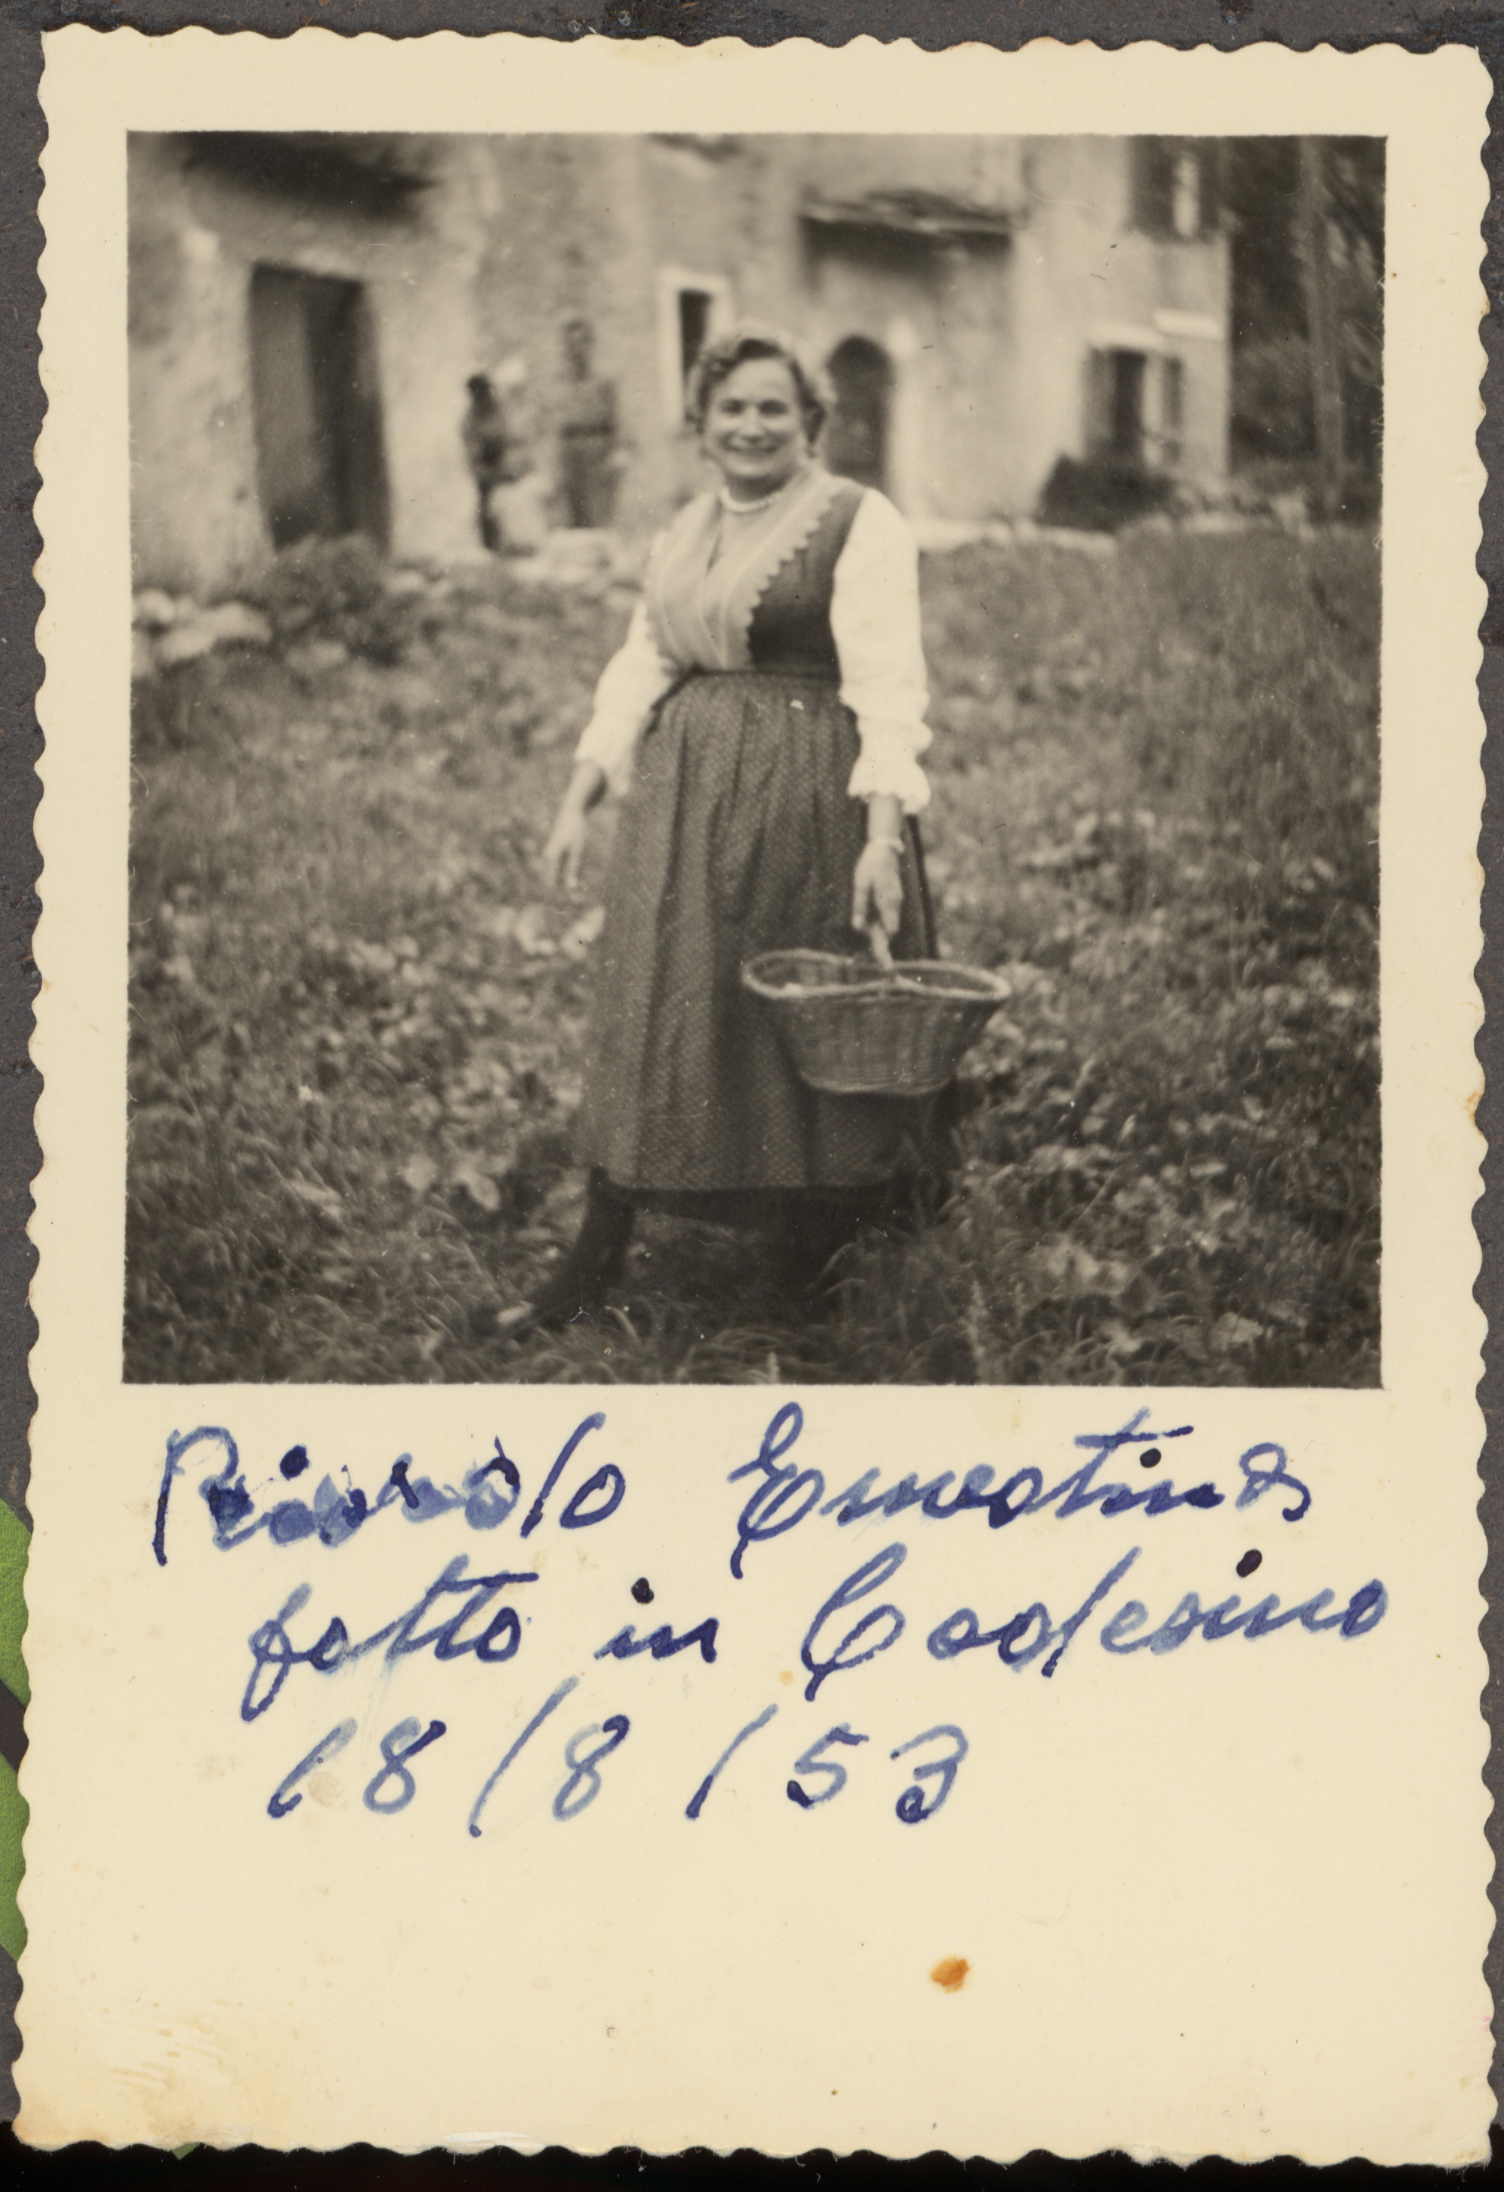 Ricordo Ernestina
fatto in Cadesino
18/8/53